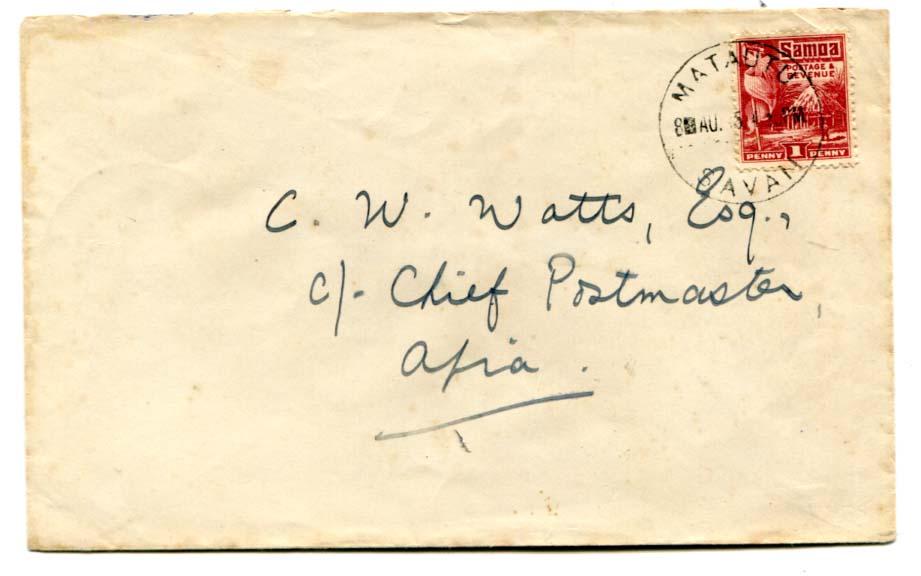 Samoa
POSTAGE &
REVENUE
PENNY 1 PENNY
MATAUTU
8 AU.
SAVAII
C. W. Watts, Esq.,
c/- Chief Postmaster,
Apia.